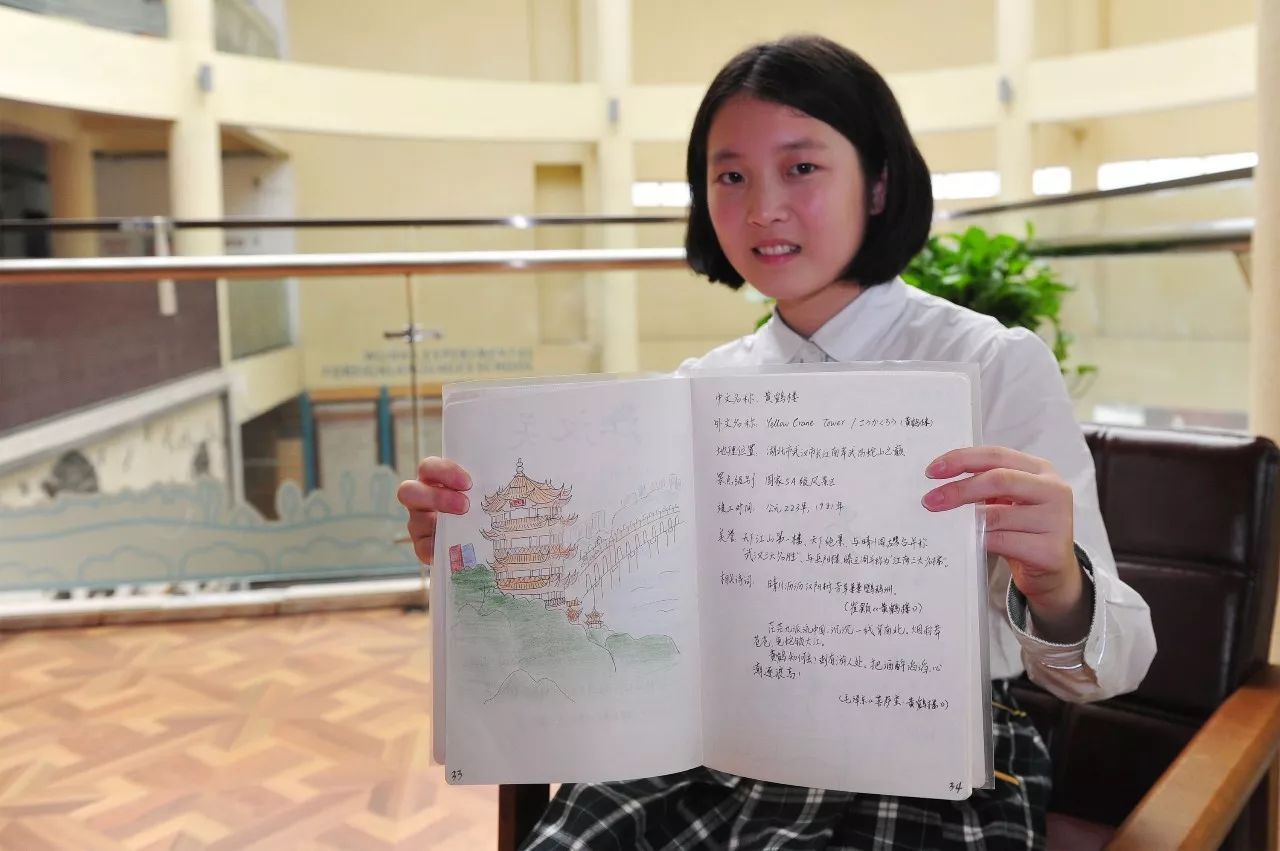 WUHAN EXPERIMENTAL
FOREIGN LANGUAGES SCHOOL
中文名称: 黄鹤楼
外文名称: Yellow Crane Tower / こうかくろう (黄鹤楼)
地理位置: 湖北省武汉市长江南岸武昌蛇山之巅
景点级别: 国家5A级风景区
竣工时间: 公元223年, 1981年
美誉: 天下江山第一楼、天下绝景、与晴川阁、古琴台并称
"武汉三大名胜"、与岳阳楼、滕王阁并称为"江南三大名楼".
相关诗词: 晴川历历汉阳树, 芳草萋萋鹦鹉洲.
(崔颢《黄鹤楼》)
茫茫九派流中国, 沉沉一线穿南北。烟雨莽
苍苍, 龟蛇锁大江。
黄鹤知何去? 剩有游人处。把酒酹滔滔, 心
潮逐浪高!
(毛泽东《菩萨蛮·黄鹤楼》)
33
34